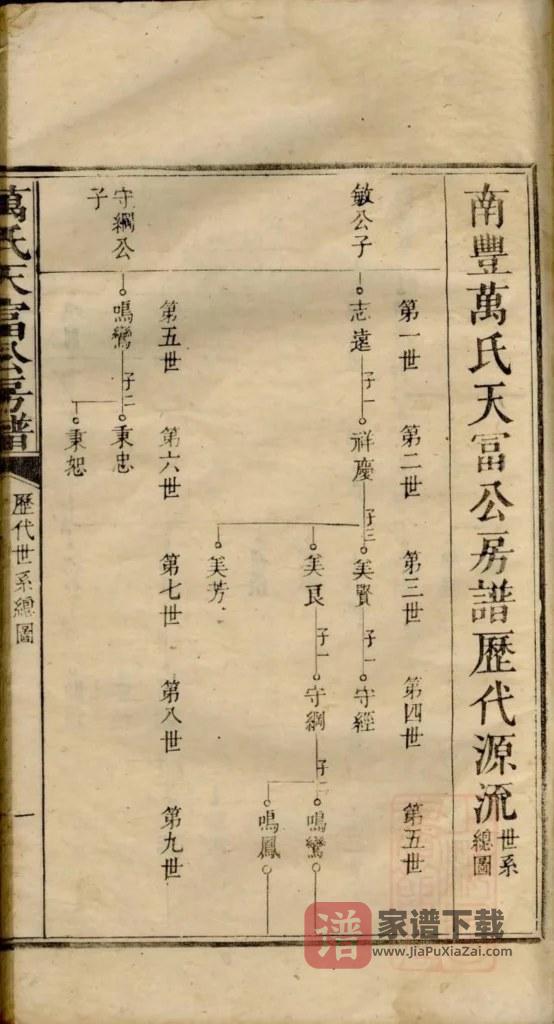 南豐萬氏天冨公房譜歷代源流世系總圖
第一世 第二世 第三世 第四世 第五世
敏公子 志遠 子一 祥慶 子三 美賢 子一 守經
美良 子一 守綱 子二 鳴鸞
鳴鳳
美芳
第五世 第六世 第七世 第八世 第九世
守綱公子 鳴鸞 子二 秉忠
秉恕
萬氏天富公房譜 歷代世系總圖 一
谱 家谱下载
www.JiaPuXiaZai.com